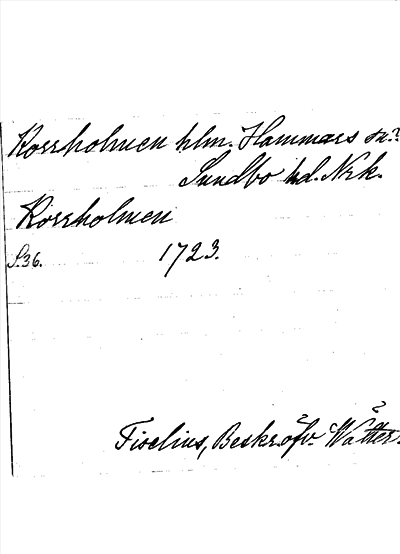 Korrholmen hlm. Hammars sn.?
Sundbo hd. Nrk.
Korrholmen
S.36. 1723.
Tiselius, Beskr. öfv. Wätter.